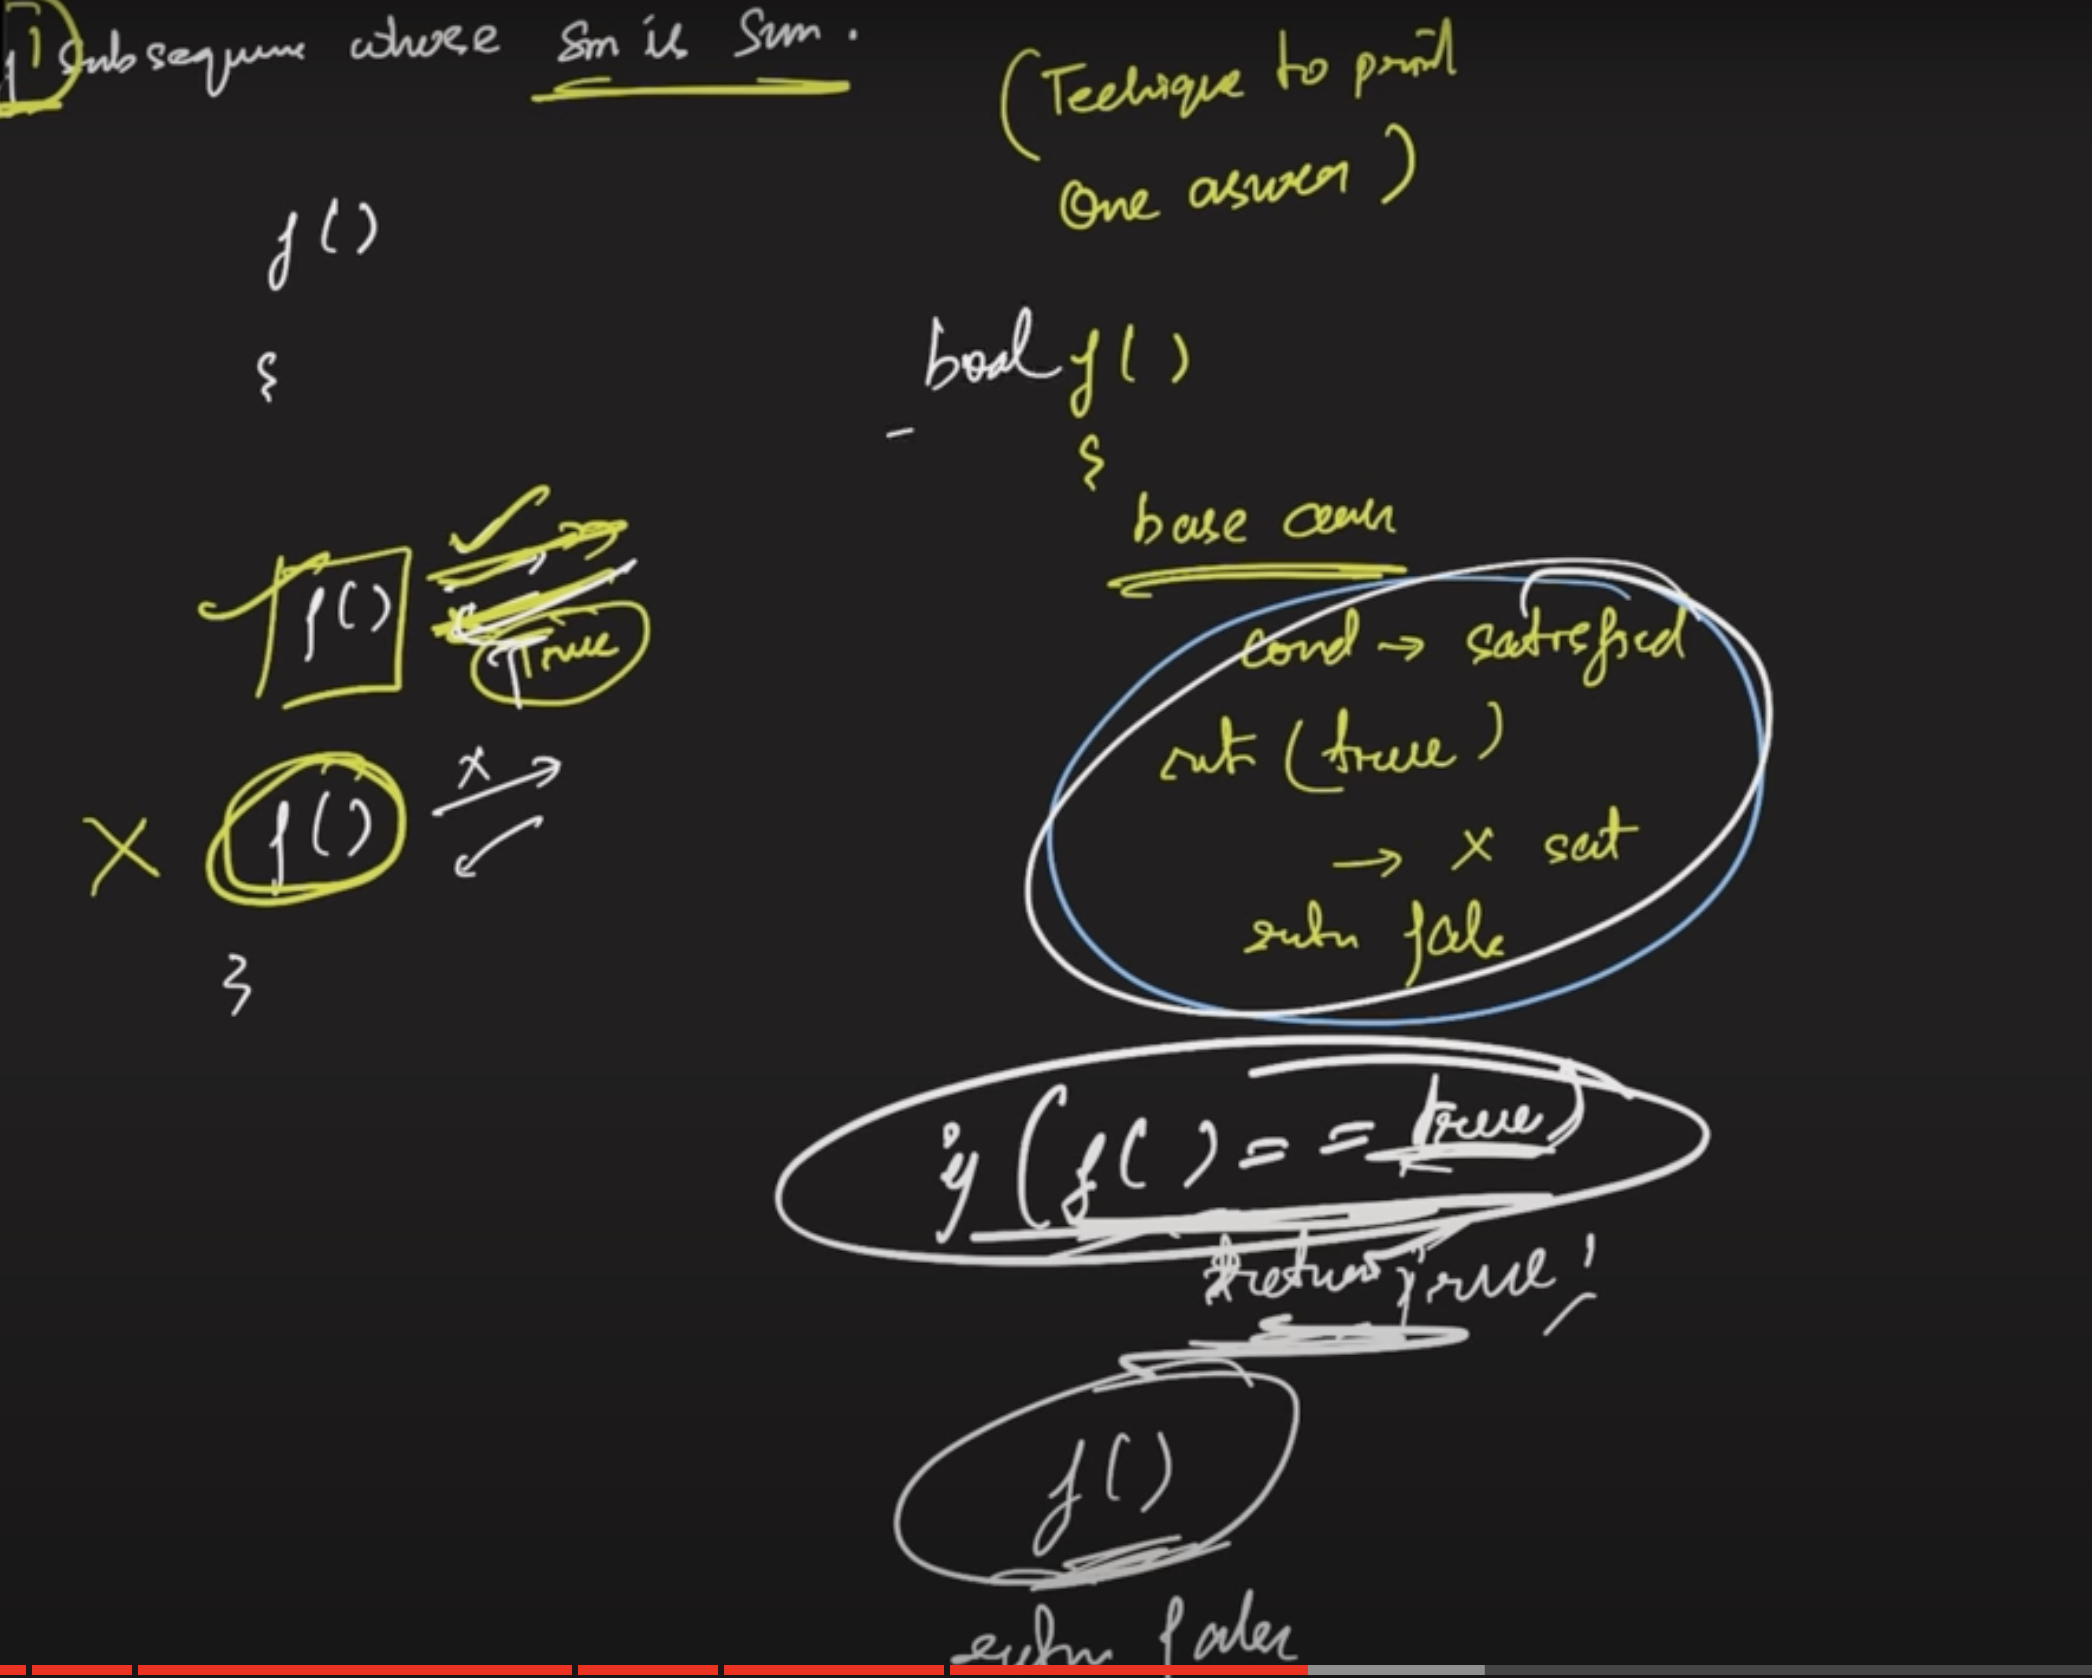 1) Subsequence whose Sm is Sum.
(Techique to print
One aswer)
f()
{
f()
True
x
X f()
}
bool f()
{
base case
cond → satisfied
ret (true)
→ x sat
retn false
if (f() == true)
return true;
f()
retn false